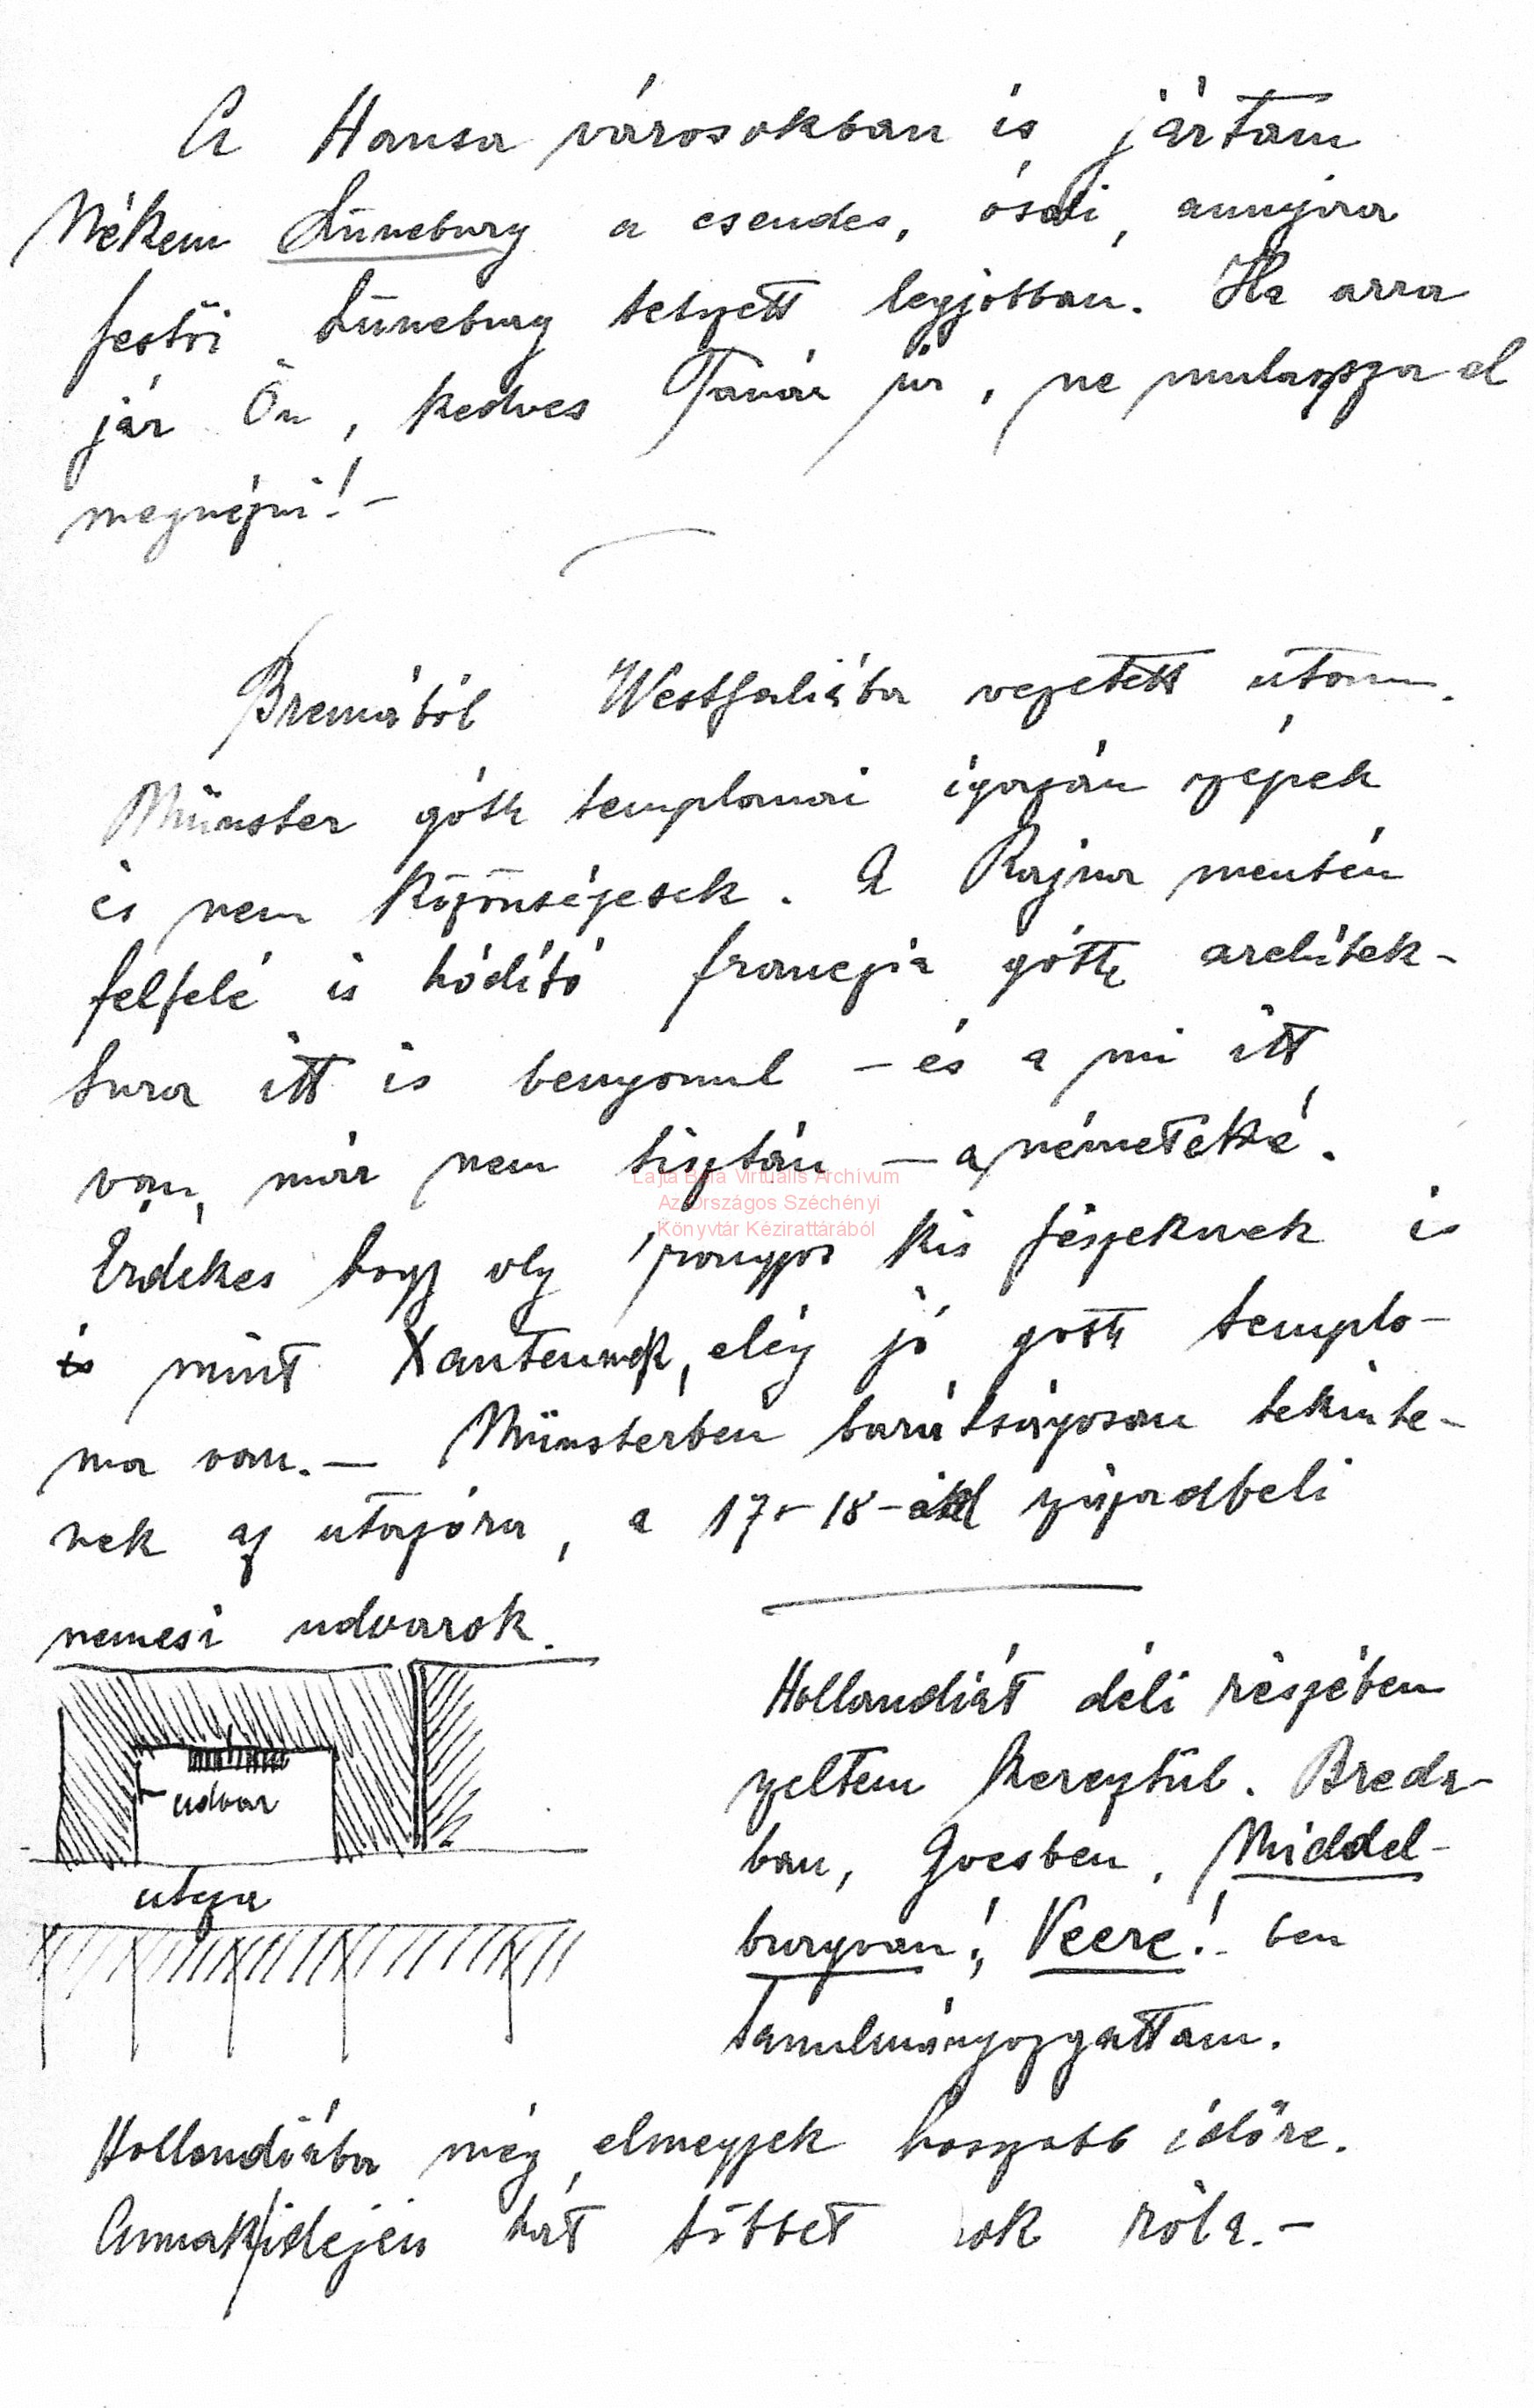 A Hansa városokban is jártam
Nékem Lüneburg a csendes, ósdi, annyira
festői Lüneburg tetszett legjobban. Ha arra
jár Ön, kedves Tanár úr, ne mulassza el
megnézni! –
Bremából Westfaliába vezetett útam.
Münster góth templomai igazán szépek
és nem közönségesek. A Rajna mentén
felfelé is hódító francia góth architek-
tura itt is benyomul – és a mi itt
van, már nem tisztán – a németeké.
Érdekes hogy oly rongyos kis fészeknek is
is mint Xantennek, elég jó goth templo-
ma van. – Münsterben barátságosan tekinte-
nek az utazóra, a 17- 18-ik századbeli
nemesi udvarok.
udvar
utcza
Hollandiát déli részében
szeltem keresztül. Breda-
ban, Goesben, Middel-
burgvan!, Veere! ben
tanulmányozgattam.
Hollandiába még elmegyek hosszabb időre.
Annakidején hát többet írok róla. –
Lajta Béla Virtuális Archívum
Az Országos Széchényi
Könyvtár Kézirattárából